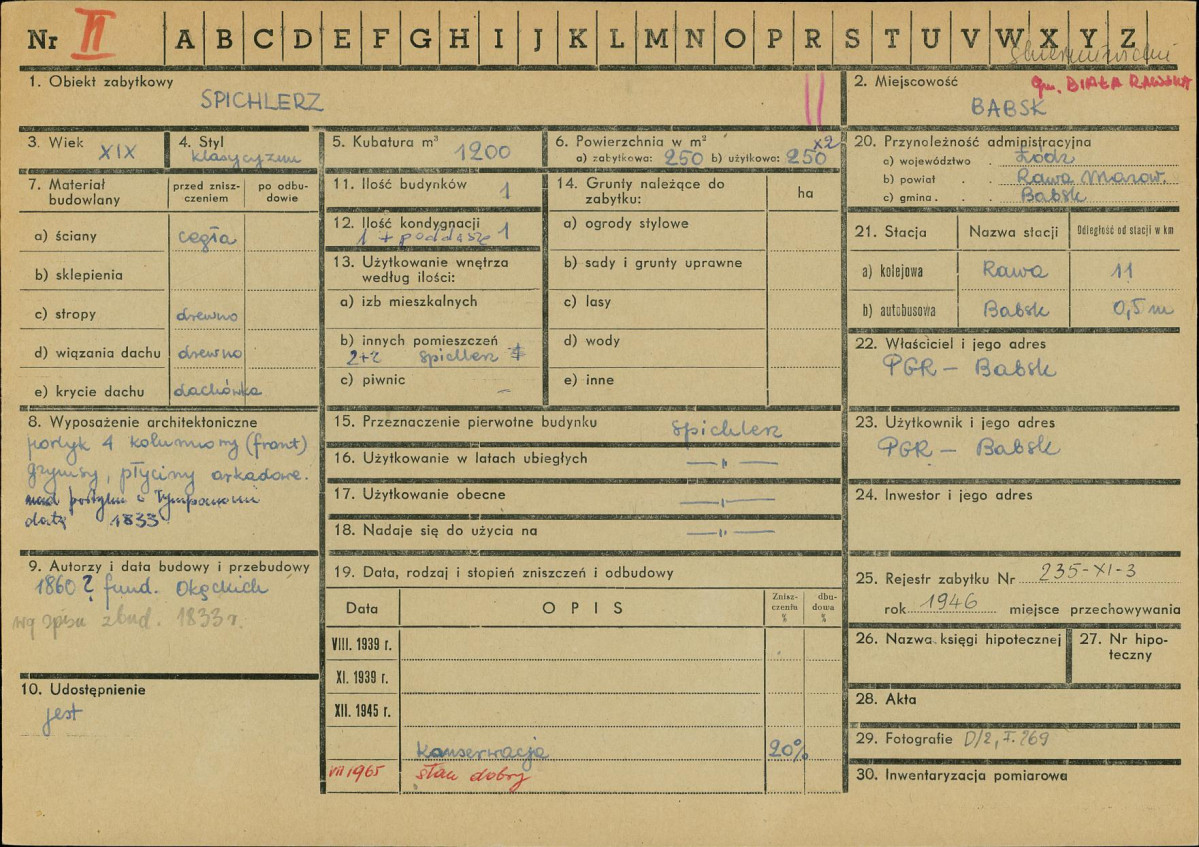 Nr II A B C D E F G H I J K L M N O P R S T U V W X Y Z
1. Obiekt zabytkowy
SPICHLERZ
II
2. Miejscowość
gm. BIAŁA RAWSKA
BABSK
3. Wiek
XIX
4. Styl
klasycyzm
5. Kubatura m³ 1200
6. Powierzchnia w m² x2
a) zabytkowa: 250 b) użytkowa: 250
7. Materiał budowlany
przed zniszczeniem
po odbudowie
a) ściany cegła
b) sklepienia
c) stropy drewno
d) wiązania dachu drewno
e) krycie dachu dachówka
8. Wyposażenie architektoniczne
portyk 4 kolumnowy (front)
gzymsy, płyciny arkadowe.
nad portyku w Tympanonie
datę 1833
9. Autorzy i data budowy i przebudowy
1860 ? fund. Okęckich
wg spisu zbud. 1833 r.
10. Udostępnienie
jest
11. Ilość budynków 1
12. Ilość kondygnacji
1 + poddasze 1
13. Użytkowanie wnętrza
według ilości:
a) izb mieszkalnych
b) innych pomieszczeń
2+2 spichlerz
c) piwnic –
14. Grunty należące do
zabytku:
ha
a) ogrody stylowe
b) sady i grunty uprawne
c) lasy
d) wody
e) inne
15. Przeznaczenie pierwotne budynku spichlerz
16. Użytkowanie w latach ubiegłych —„—
17. Użytkowanie obecne —„—
18. Nadaje się do użycia na —„—
19. Data, rodzaj i stopień zniszczeń i odbudowy
Data
OPIS
Zniszczenia %
dbudowa %
VIII. 1939 r.
XI. 1939 r.
XII. 1945 r.
konserwacja 20%
VII 1965 stan dobry
20. Przynoleżność admipistracyjna
a) województwo . Łódź
b) powiat . . Rawa Mazow.
c) gmina . . . Babsk
21. Stacja
Nazwa stacji
Odległość od stacji w km
a) kolejowa Rawa 11
b) autobusowa Babsk 0,5 m
22. Właściciel i jego adres
PGR – Babsk
23. Użytkownik i jego adres
PGR – Babsk
24. Inwestor i jego adres
25. Rejestr zabytku Nr 235-XI-3
rok 1946 miejsce przechowywania
26. Nazwa księgi hipotecznej
27. Nr hipoteczny
28. Akta
29. Fotografie D/2, I. 269
30. Inwentaryzacja pomiarowa